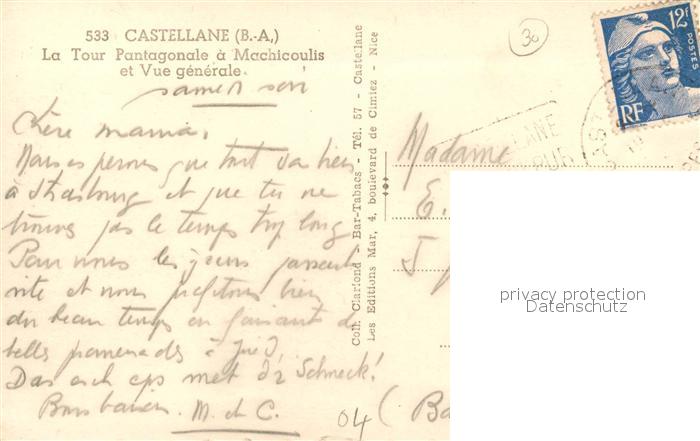 533 CASTELLANE (B.-A,)
La Tour Pantagonale à Machicoulis
et Vue générale.
samedi soir
Chère maman,
Nous espérons que tout va bien
à Strasbourg et que tu ne
trouves pas le temps trop long
Pour nous les jours passent
vite et nous profitons bien
du beau temps en faisant de
belles promenades à pied,
Das esch eps met d'r Schneck!
Bons baisers M. et C.
Coll. Clariond - Bar-Tabacs - Tél. 57 - Castellane
Les Editions Mar, 4, boulevard de Cimiez - Nice
30
12F
POSTES
RF
Madame
E.
04
(Ba
privacy protection
Datenschutz